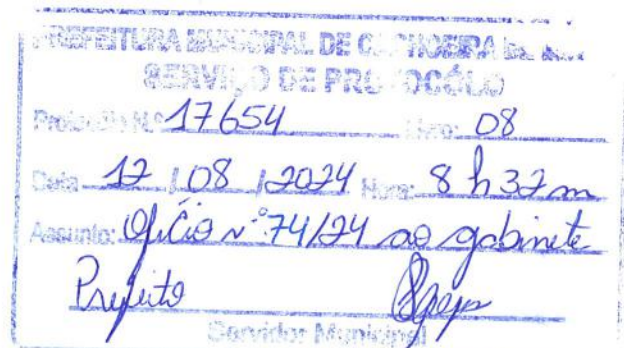 PREFEITURA MUNICIPAL DE CACHOEIRA DE
SERVIÇO DE PROTOCÓLO
Protocolo N.º 17654 Livro: 08
Data 12 / 08 / 2024 Hora: 8 h 32 m
Assunto: Ofício nº 74/24 ao gabinete
Prefeito
Servidor Municipal